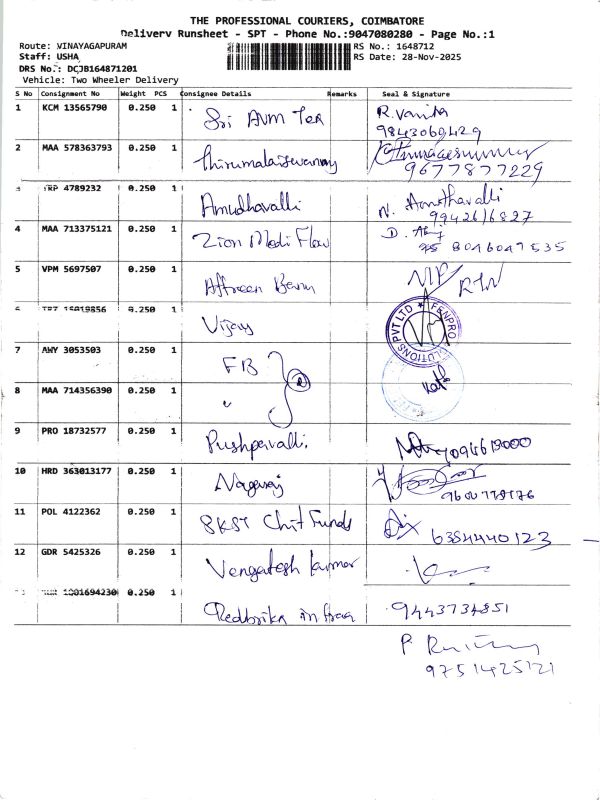 THE PROFESSIONAL COURIERS, COIMBATORE
Delivery Runsheet - SPT - Phone No.:9047080280 - Page No.:1
Route: VINAYAGAPURAM
RS No.: 1648712
Staff: USHA
RS Date: 28-Nov-2025
DRS No.: DCJB164871201
Vehicle: Two Wheeler Delivery
S No Consignment No Weight PCS Consignee Details Remarks Seal & Signature
1 KCM 13565790 0.250 1 Sri AVM Tex R. Vanitha
9843060429
2 MAA 578363793 0.250 1 Thirumalaiswamy
9677877229
3 TRP 4789232 0.250 1 Amudhavalli N. Amuthavalli
9942616827
4 MAA 713375121 0.250 1 Zion Medi Flow D.
8046047535
5 VPM 5697507 0.250 1 Affreen Banu
6 0.250 1 Vijay
FENPRO
LUTIONS PVT LTD
7 AWY 3053503 0.250 1 FB
8 MAA 714356390 0.250 1 "
9 PRO 18732577 0.250 1 Pushpavalli
10 HRD 363013177 0.250 1 Nagaraj
11 POL 4122362 0.250 1 SKST Chit Funds
6354440123
12 GDR 5425326 0.250 1 Vengatesh kumar
0.250 1 Redbrikx infraa 9443734851
P.
9751425121